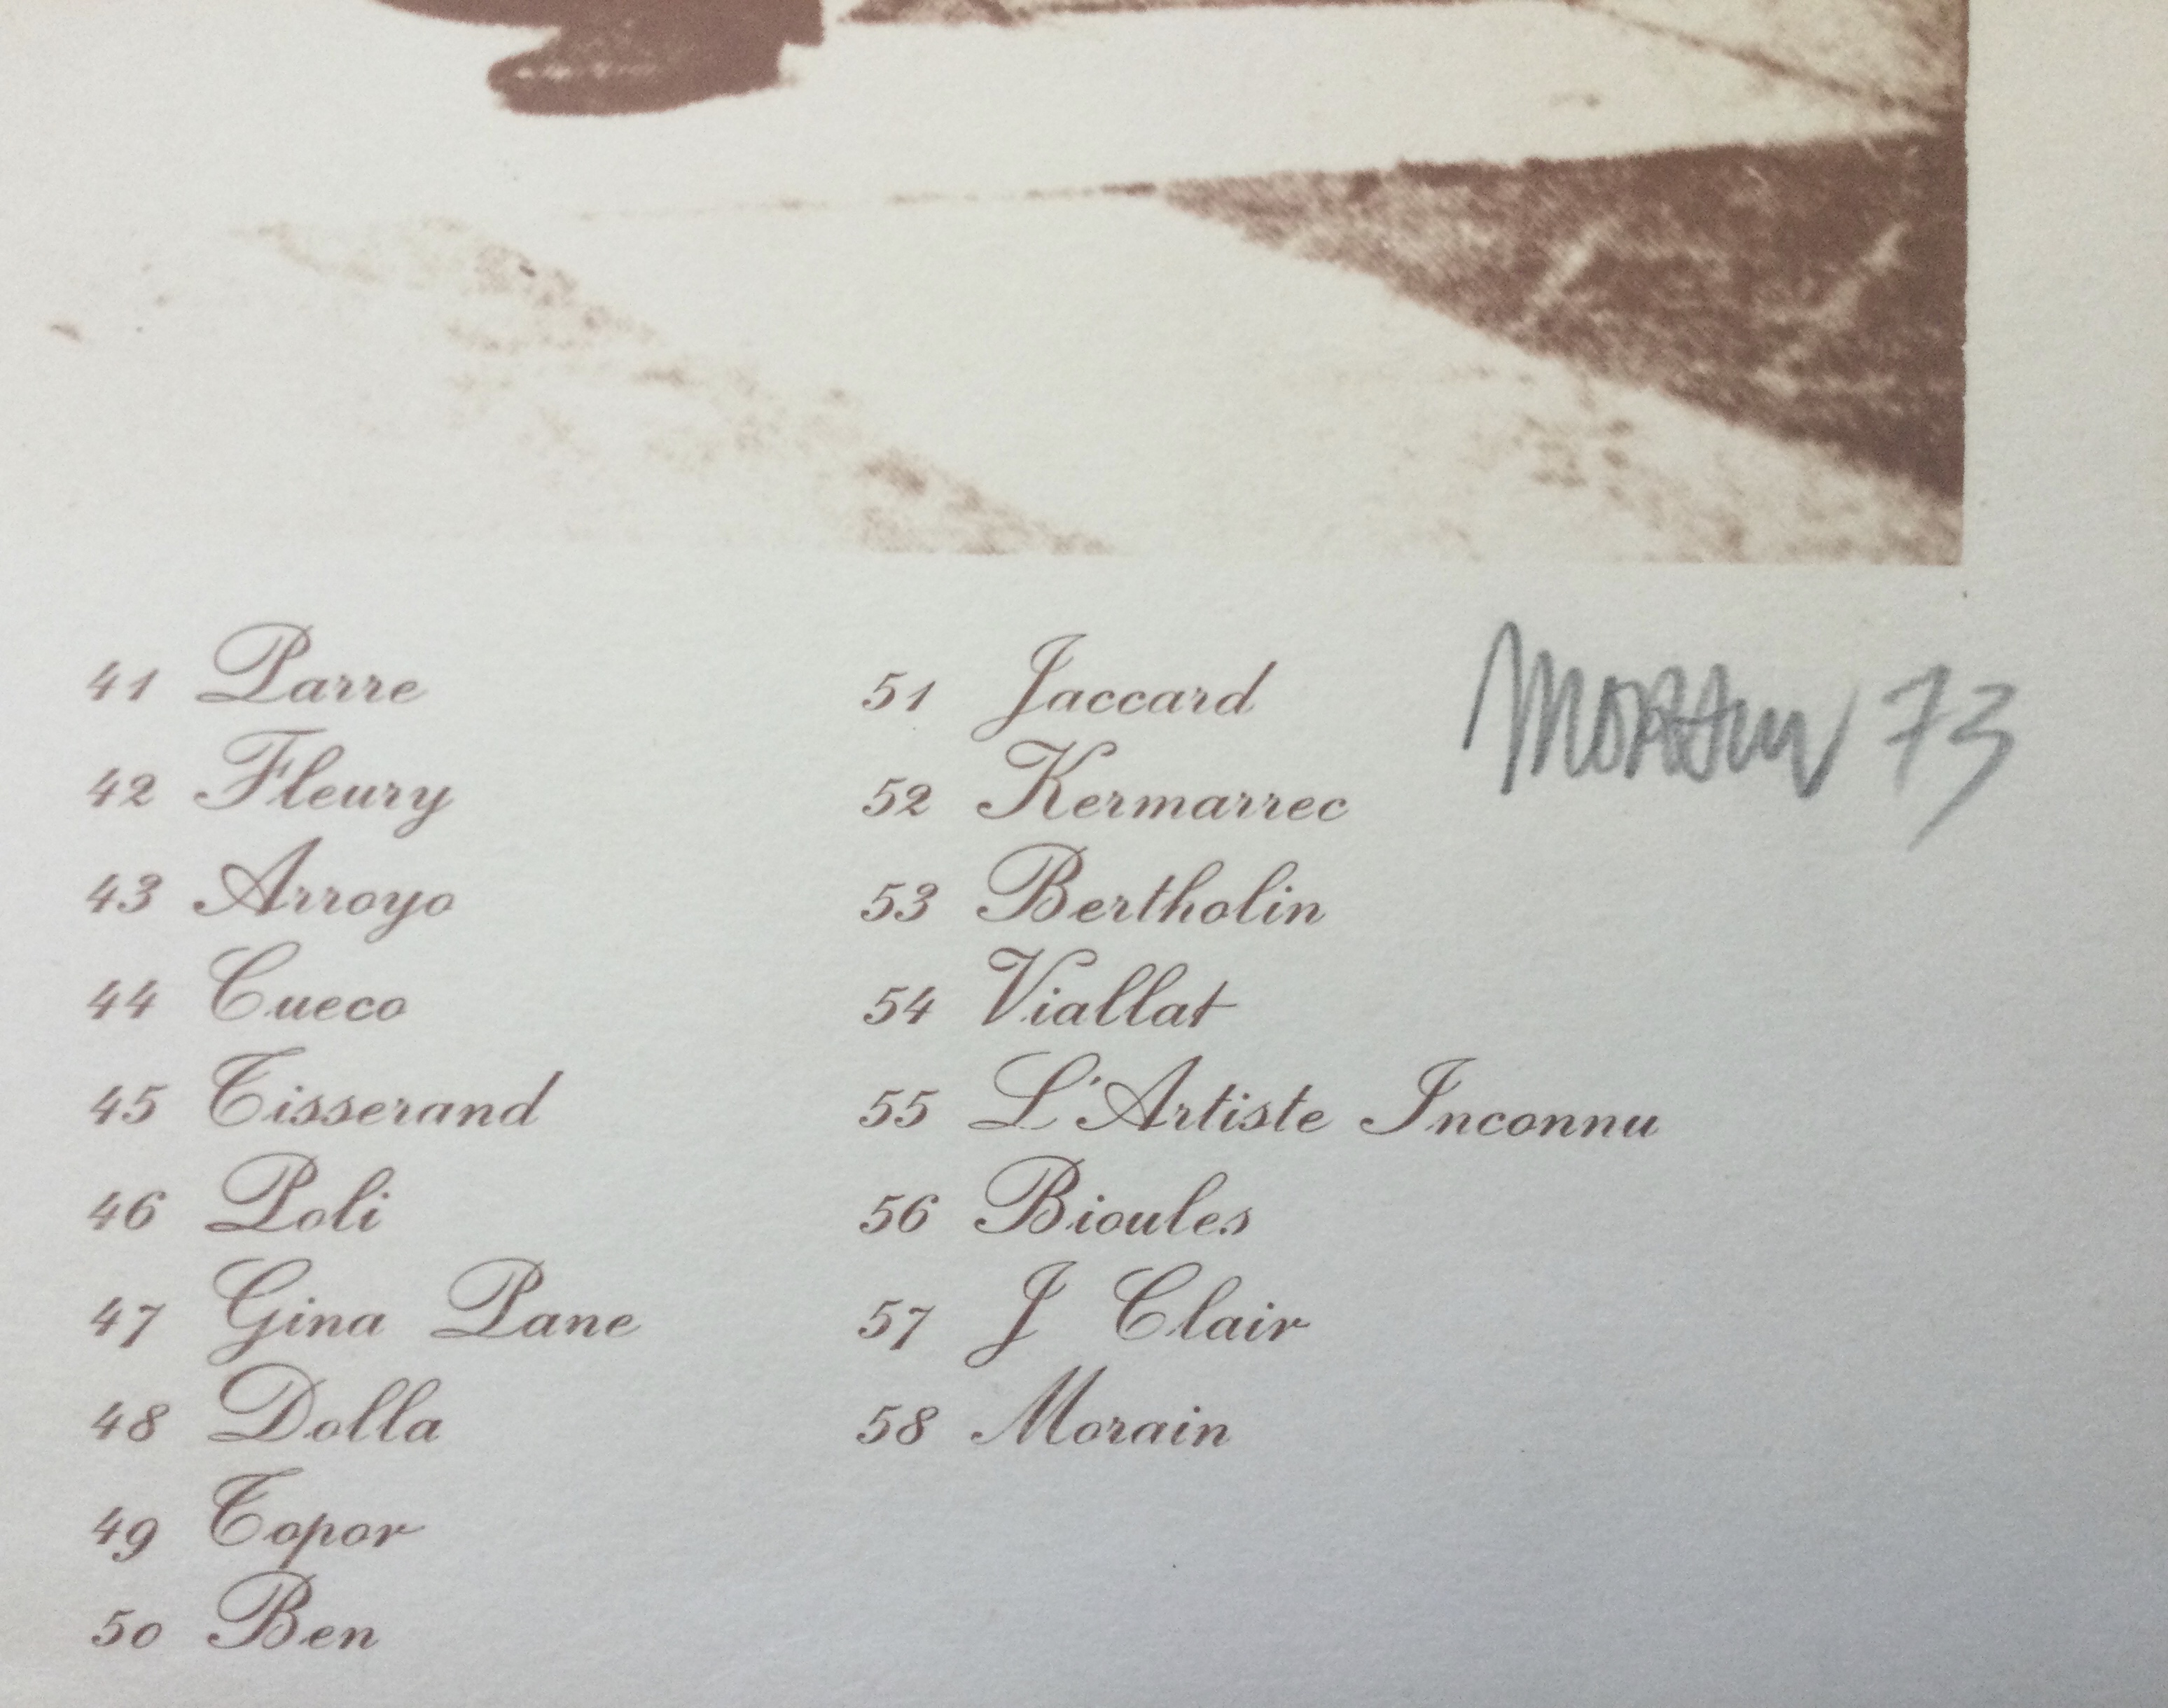 41 Parre
42 Fleury
43 Arroyo
44 Cueco
45 Tisserand
46 Poli
47 Gina Pane
48 Dolla
49 Topor
50 Ben
51 Jaccard
52 Kermarrec
53 Bertholin
54 Viallat
55 L'Artiste Inconnu
56 Bioules
57 J Clair
58 Morain
MORAIN 73